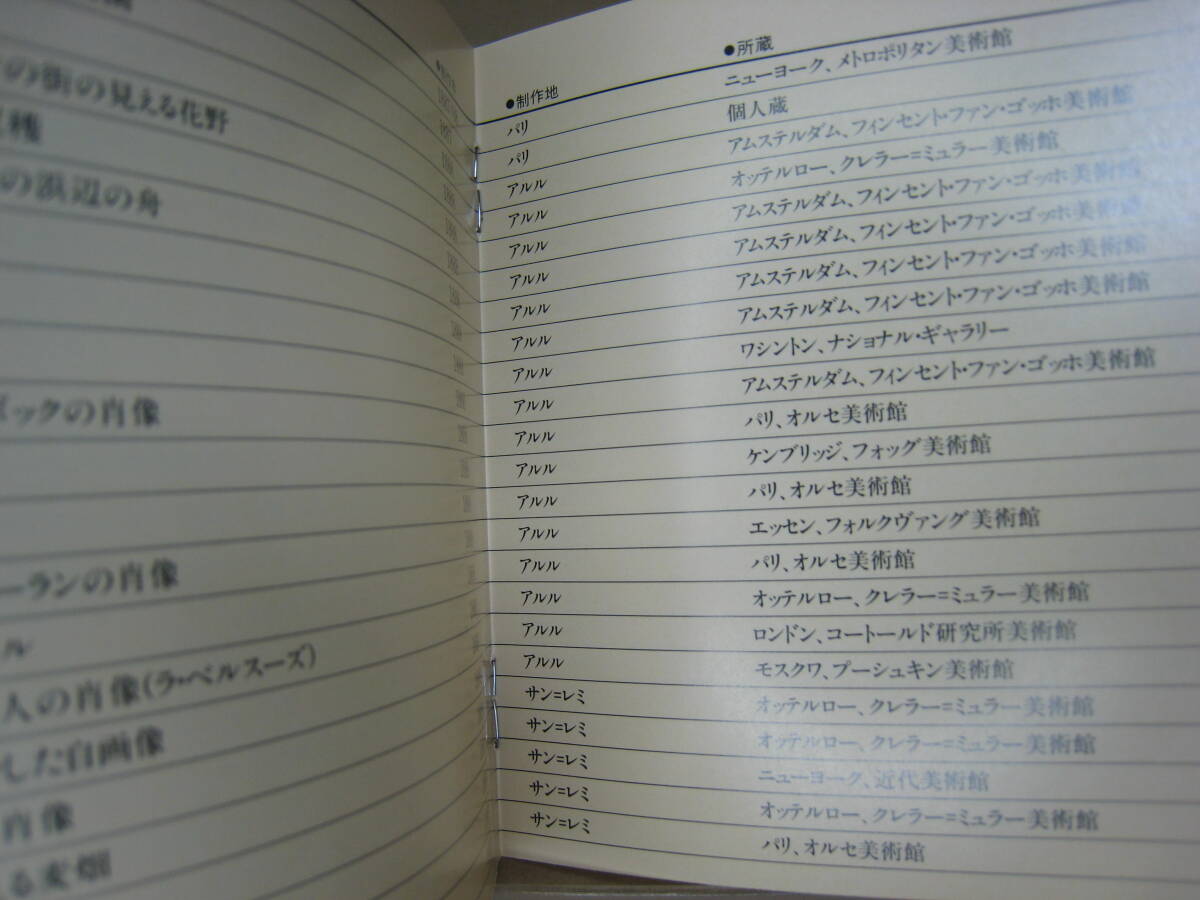 の街の見える花野
の浜辺の舟
ボックの肖像
ーランの肖像
ル
人の肖像(ラ・ベルスーズ)
した自画像
肖像
る麦畑
●制作地 ●所蔵
パリ ニューヨーク、メトロポリタン美術館
パリ 個人蔵
アルル アムステルダム、フィンセント・ファン・ゴッホ美術館
アルル オッテルロー、クレラー=ミュラー美術館
アルル アムステルダム、フィンセント・ファン・ゴッホ美術館
アルル アムステルダム、フィンセント・ファン・ゴッホ美術館
アルル アムステルダム、フィンセント・ファン・ゴッホ美術館
アルル アムステルダム、フィンセント・ファン・ゴッホ美術館
アルル ワシントン、ナショナル・ギャラリー
アルル アムステルダム、フィンセント・ファン・ゴッホ美術館
アルル パリ、オルセ美術館
アルル ケンブリッジ、フォッグ美術館
アルル パリ、オルセ美術館
アルル エッセン、フォルクヴァング美術館
アルル パリ、オルセ美術館
アルル オッテルロー、クレラー=ミュラー美術館
アルル ロンドン、コートールド研究所美術館
アルル モスクワ、プーシュキン美術館
サン=レミ オッテルロー、クレラー=ミュラー美術館
サン=レミ オッテルロー、クレラー=ミュラー美術館
サン=レミ ニューヨーク、近代美術館
サン=レミ オッテルロー、クレラー=ミュラー美術館
サン=レミ パリ、オルセ美術館